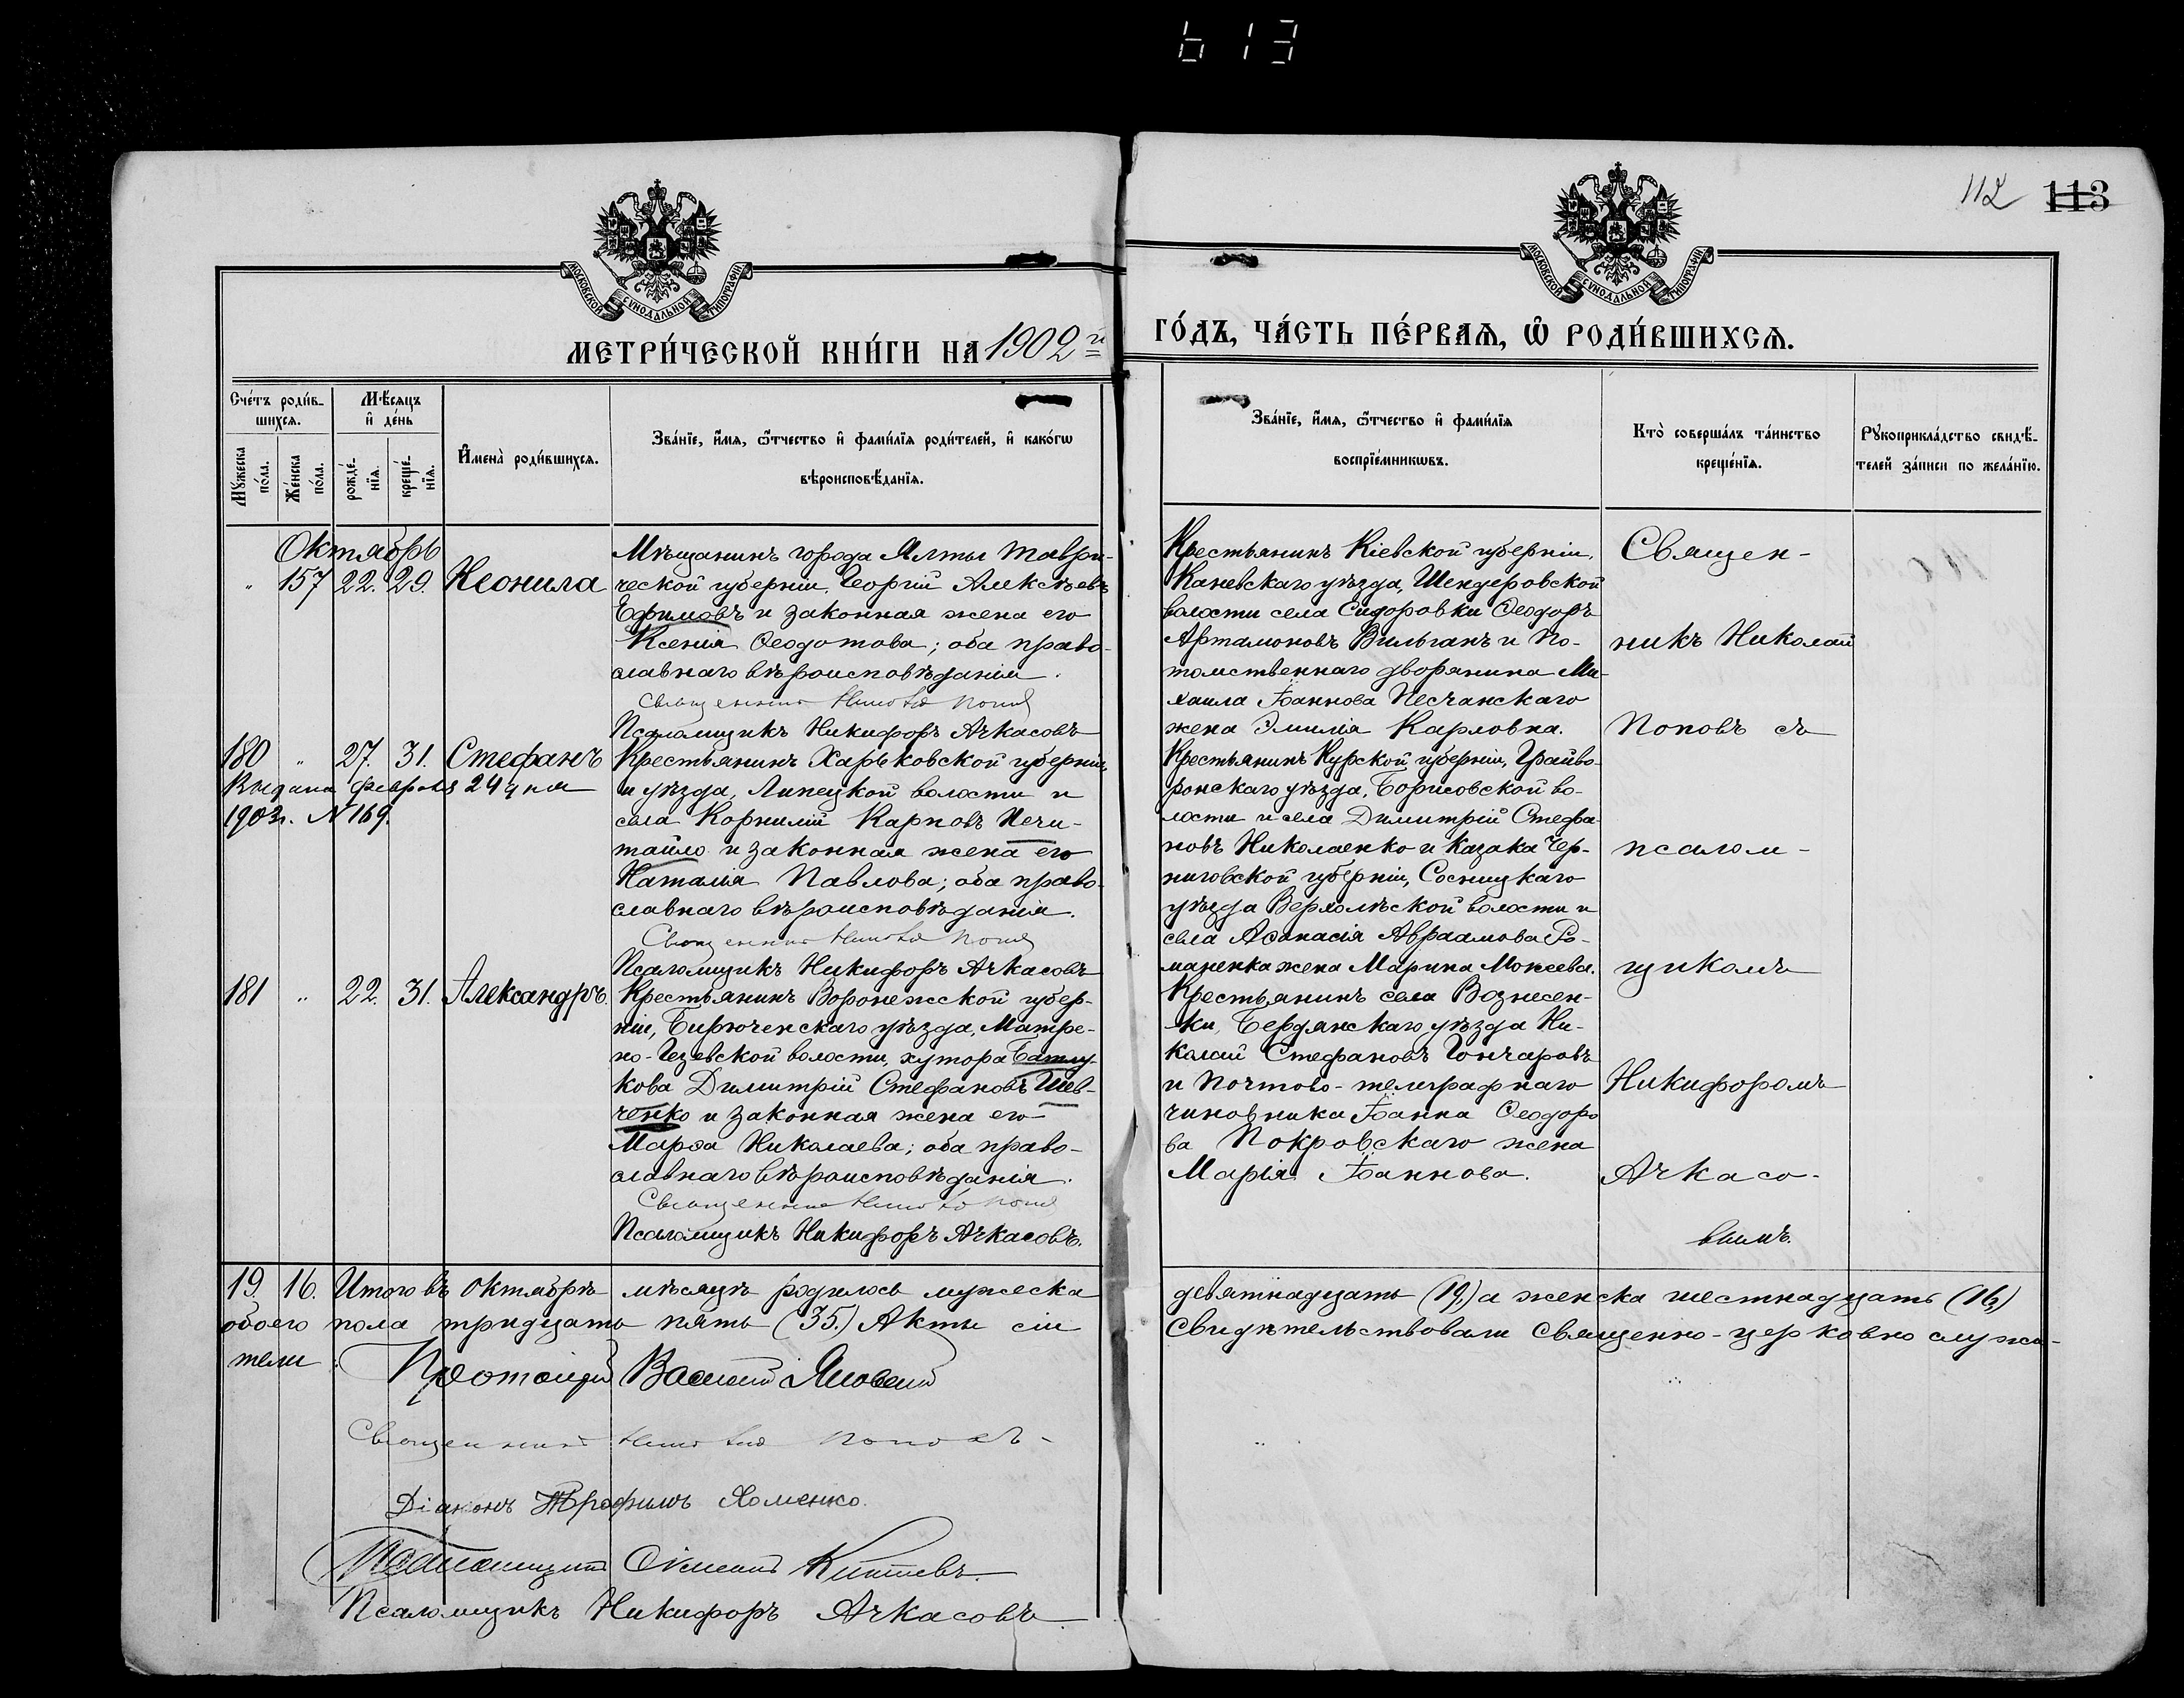 613
112 113
МОСКОВСКОЙ СѴНОДАЛЬНОЙ ТИПОГРАФІИ.
МОСКОВСКОЙ СѴНОДАЛЬНОЙ ТИПОГРАФІИ.
МЕТРИ́ЧЕСКОЙ КНИ́ГИ НА 1902 й
ГО́ДЪ, ЧА́СТЬ ПЕ́РВАѦ, Ѽ РОДИ́ВШИХСѦ.
Сче́тъ роди́в-
шихсѧ.
Мꙋ́жеска по́ла.
Же́нска по́ла.
Мѣ́сѧцъ
и҆ де́нь
рожде́-
нїѧ.
креще́-
нїѧ.
И҆мена̀ роди́вшихсѧ.
Зва́нїе, и҆́мѧ, ѻ҆́тчество и҆ фами́лїѧ роди́телей, и҆ како́гѡ
вѣроисповѣ́данїѧ.
Зва́нїе, и҆́мѧ, ѻ҆́тчество и҆ фами́лїѧ
воспрїе́мникѡвъ.
Кто̀ соверша́лъ та́инство
креще́нїѧ.
Рꙋкоприкла́дство свидѣ́-
телей за́писи по жела́нїю.
Октябрь
" 157 22. 29. Неонила
Мѣщанинъ города Ялты Таври-
ческой губерніи, Георгій Алексѣевъ
Ефимовъ и законная жена его
Ксенія Ѳеодотова; оба право-
славнаго вѣроисповѣданія.
Священникъ Николай Поповъ
Псаломщикъ Никифоръ Ачкасовъ
Крестьянинъ Кіевской губерніи,
Каневскаго уѣзда, Шендеровской
волости села Сидоровки Ѳеодоръ
Артамоновъ Вильганъ и по-
томственнаго дворянина Ми-
хаила Іоаннова Песчанскаго
жена Эмилія Карловна.
Священ-
никъ Николай
Поповъ съ
180 " 27. 31. Стефанъ
Выдана февраля 24 дня
1903 г. № 169.
Крестьянинъ Харьковской губерніи
и уѣзда, Липецкой волости и
села Корнилій Карповъ Нечи-
тайло и законная жена его
Наталія Павлова; оба право-
славнаго вѣроисповѣданія.
Священникъ Николай Поповъ
Псаломщикъ Никифоръ Ачкасовъ
Крестьянинъ Курской губерніи, Грайво-
ронскаго уѣзда, Борисовской во-
лости и села Димитрій Стефа-
новъ Николаенко и казака Чер-
ниговской губерніи, Сосницкаго
уѣзда Верхолѣской волости и
села Аѳанасія Авраамова Ро-
маненка жена Марина Мокеева.
псалом-
щикомъ
181 " 22. 31. Александръ.
Крестьянинъ Воронежской губер-
ніи, Бирюченскаго уѣзда, Матре-
но-Гезевской волости, хутора Батлу-
кова Димитрій Стефановъ Шев-
ченко и законная жена его
Марѳа Николаева; оба право-
славнаго вѣроисповѣданія.
Священникъ Николай Поповъ
Псаломщикъ Никифоръ Ачкасовъ.
Крестьянинъ села Вознесен-
ки, Бердянскаго уѣзда Ни-
колай Стефановъ Гончаровъ
и почтово-телеграфнаго
чиновника Іоанна Ѳеодоро
ва Покровскаго жена
Марія Іоаннова.
Никифоромъ
Ачкасо-
вымъ.
19. 16. Итого въ октябрѣ мѣсяцѣ родилось мужеска девятнадцать (19,) а женска шестнадцать (16,)
обоего пола тридцать пять (35.) Акты сіи свидѣтельствовали священно-церковно служи-
тели:
Протоіерей Василій
Священникъ Николай Поповъ
Діаконъ Трофимъ Хоменко.
Псаломщикъ
Псаломщикъ Никифоръ Ачкасовъ